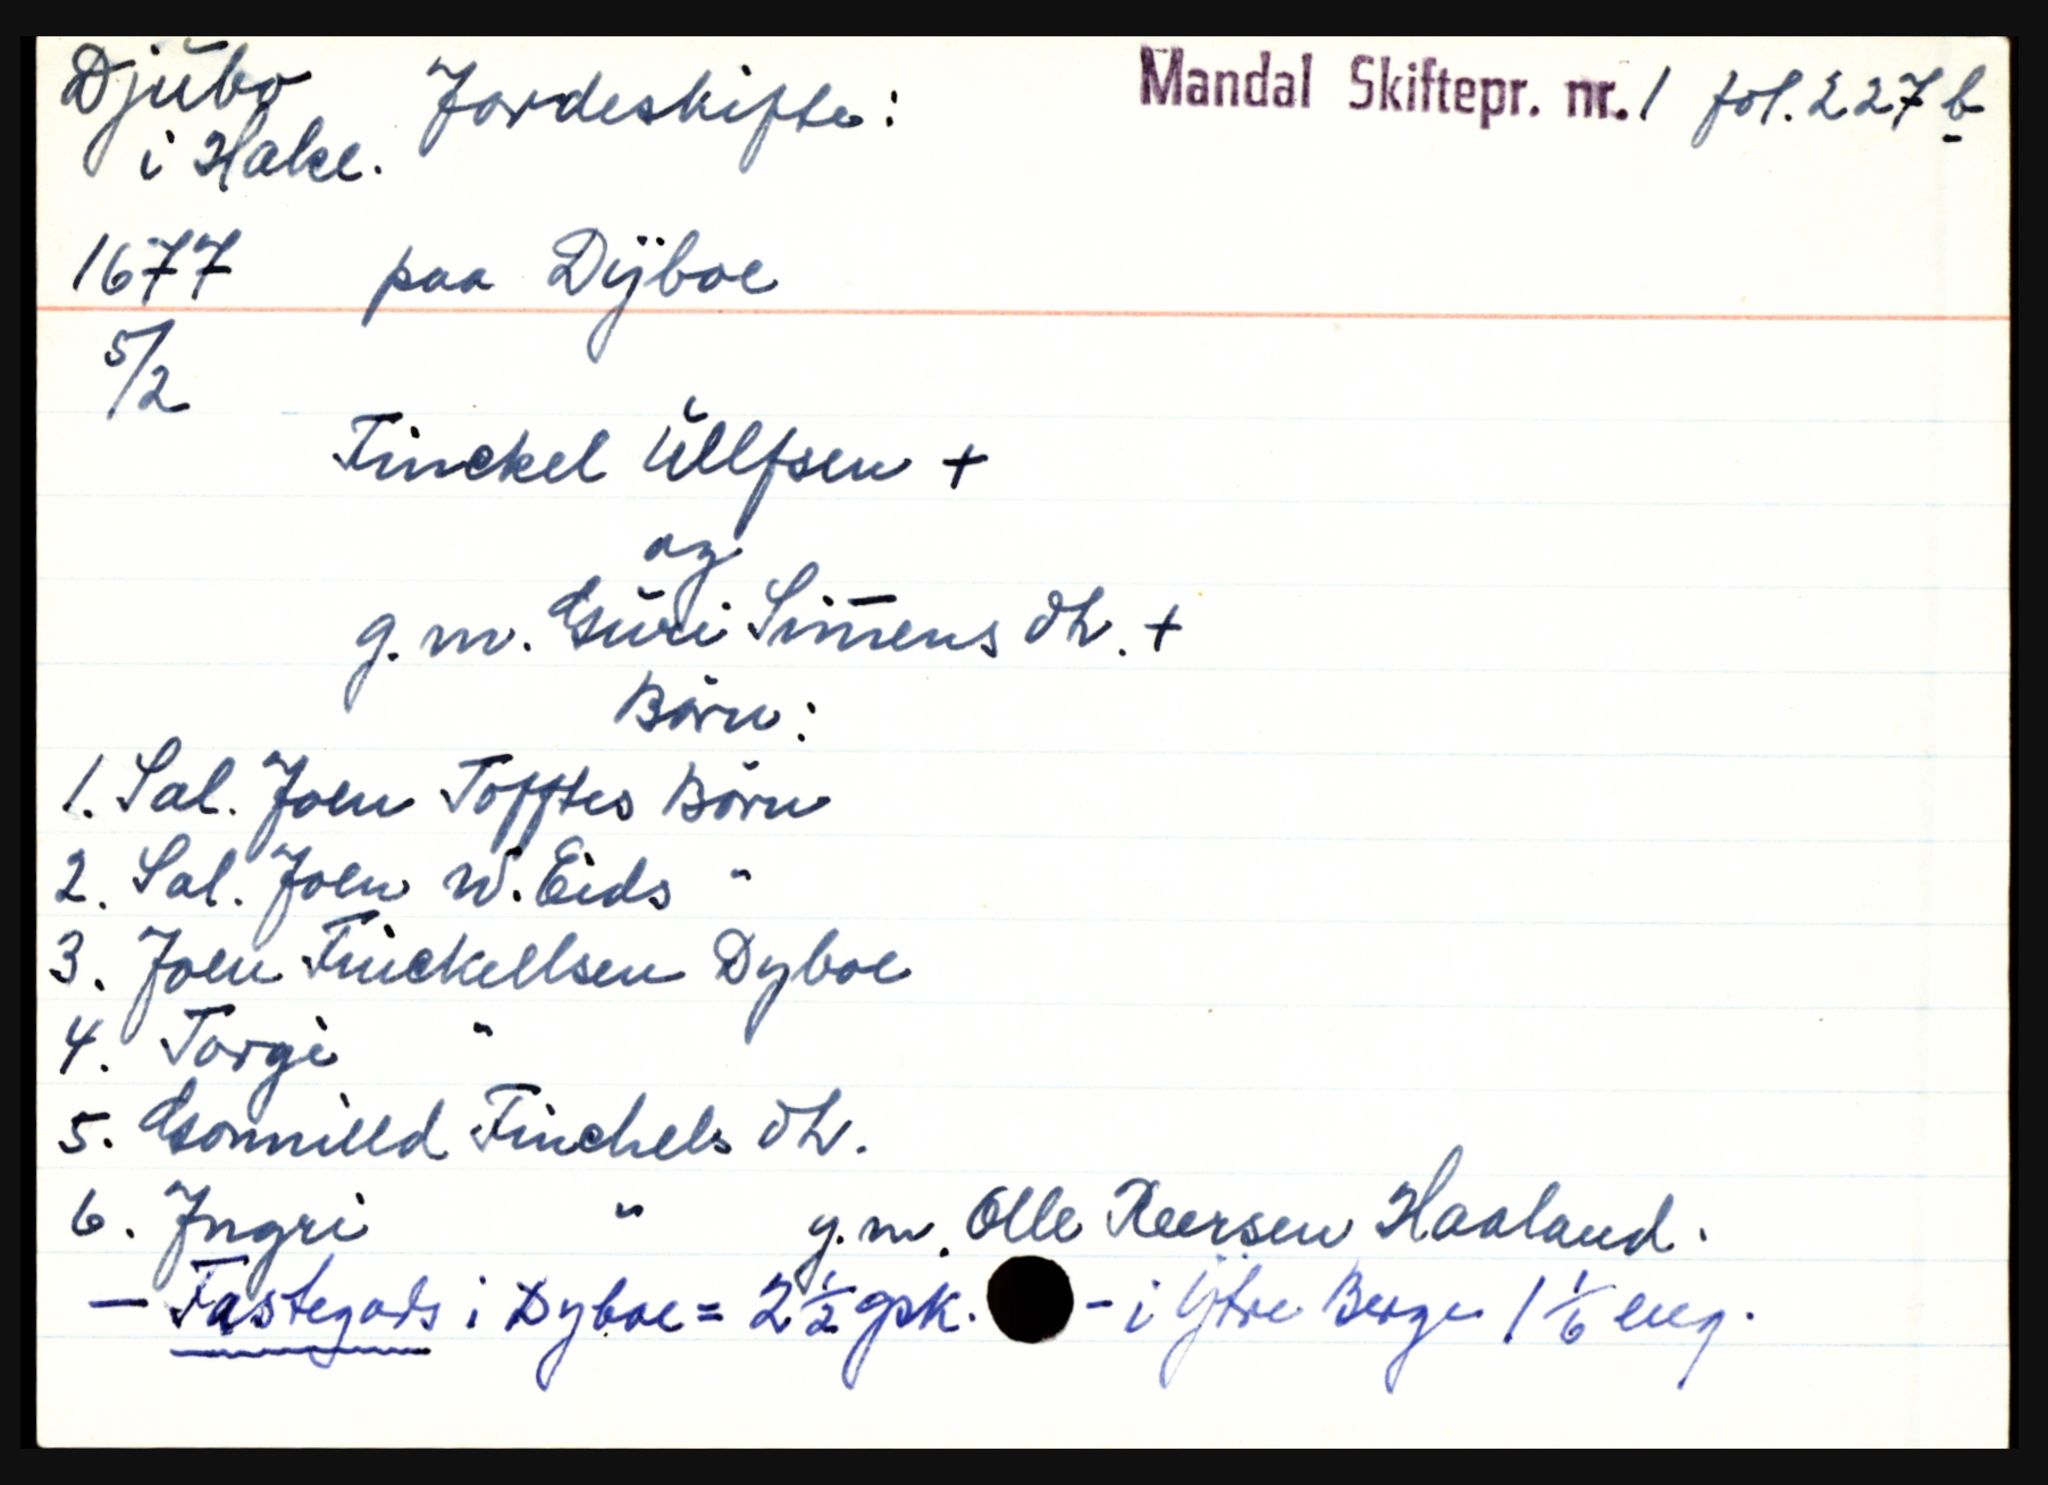 Djŭbo Jordeskifte: Mandal Skiftepr. nr. 1 fol. 227 b
i Halse.
1677 paa Dÿboe
5/2
Finckel Ŭllfsen +
og
g. m. Gŭri Sim̅ens dtr. +
Børn:
1. Sal. Joen Tofftes Børn
2. Sal. Joen W. Eids "
3. Joen Finckellsen Dyboe
4. Torgi "
5. Gonnilld Finchels dtr.
6. Jngri " g. m. Olle Reersen Haaland.
— Fastegods i Dyboe = 2 1/2 gsk. - i Ÿtre Berge 1 1/6 eng.